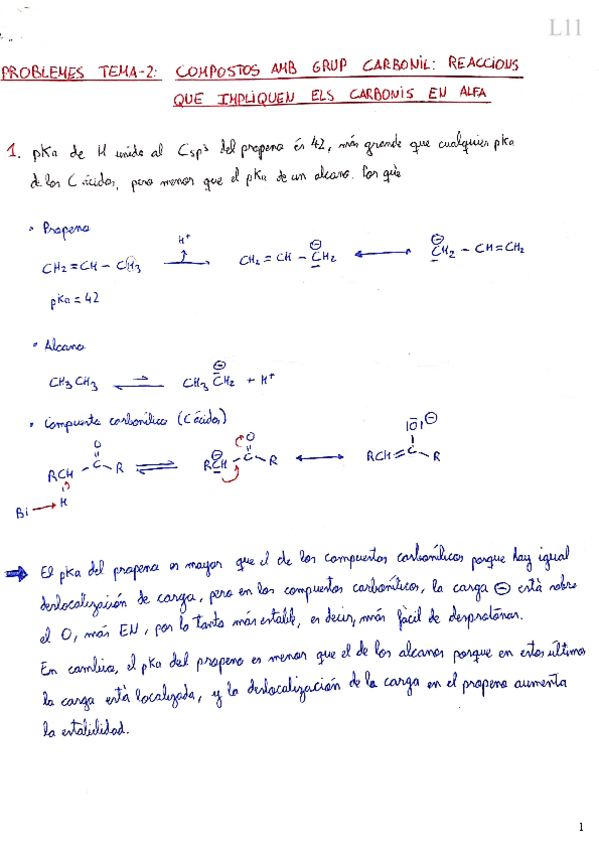 L11
PROBLEMES TEMA-2: COMPOSTOS AMB GRUP CARBONIL: REACCIONS
QUE IMPLIQUEN ELS CARBONIS EN ALFA
1. pKa de H unido al Csp³ del propeno és 42, más grande que cualquier pKa
de los C ácidos, pero menor que el pKa de un alcano. Por què
• Propeno
H⁺
CH₂=CH-CH₃ → CH₂=CH-CH₂ ⊖ ↔ ⊖ CH₂-CH=CH₂
pKa = 42
• Alcano
CH₃CH₃ ⇌ CH₃CH₂ ⊖ + H⁺
• Compuesto carbonílico (C ácidos)
O O |O| ⊖
RCH-C-R ⇌ RCH ⊖-C-R ↔ RCH=C-R
Bi → H
➡ El pKa del propeno es mayor que el de los compuestos carbonílicos porque hay igual
deslocalización de carga, pero en los compuestos carbonílicos, la carga ⊖ està sobre
el O, más EN, por lo tanto más estable, es decir, más fàcil de desprotonar.
En cambio, el pKa del propeno es menor que el de los alcanos porque en estos últimos
la carga està localizada, y la deslocalización de la carga en el propeno aumenta
la estabilidad.
1